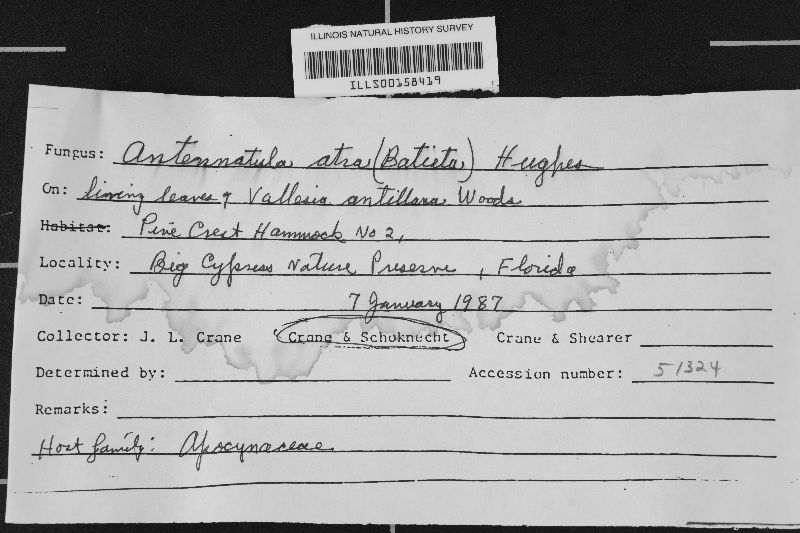 ILLINOIS NATURAL HISTORY SURVEY
ILLS00158419
Fungus: Antennatula atra (Batista) Hughes
On: living leaves of Vallesia antillana Woods
Habitat: Pine Crest Hammock No 2,
Locality: Big Cypress Nature Preserve, Florida
Date: 7 January 1987
Collector: J. L. Crane Crane & Schoknecht Crane & Shearer
Determined by: Accession number: 51324
Remarks:
Host family: Apocynaceae